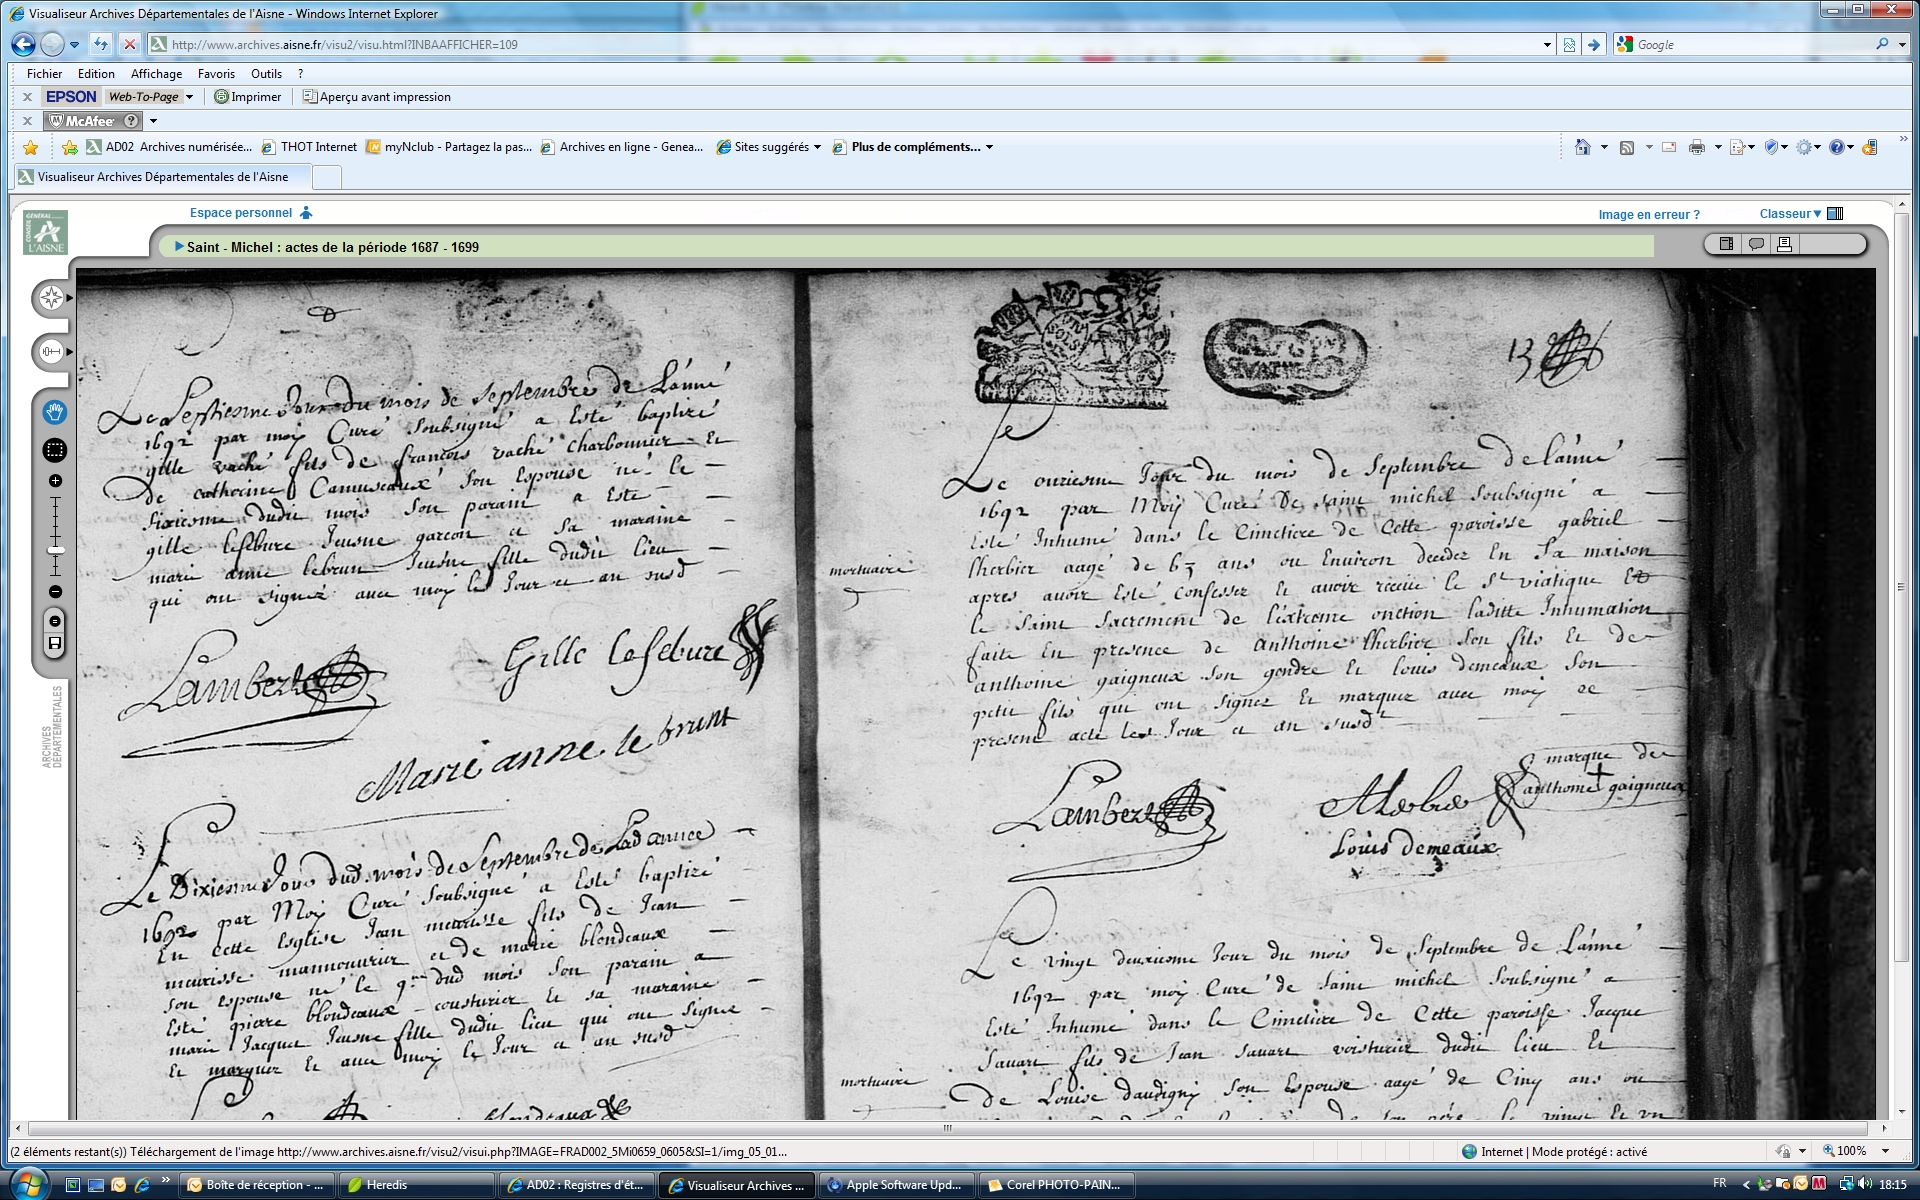 Visualiseur Archives Départementales de l'Aisne - Windows Internet Explorer
http://www.archives.aisne.fr/visu2/visu.html?INBAAFFICHER=109
Google
Fichier Edition Affichage Favoris Outils ?
x EPSON Web-To-Page Imprimer Aperçu avant impression
x McAfee ?
AD02 Archives numérisée... THOT Internet myNclub - Partagez la pas... Archives en ligne - Genea... Sites suggérés Plus de compléments...
Visualiseur Archives Départementales de l'Aisne
Espace personnel Image en erreur ? Classeur
CONSEIL GÉNÉRAL L'AISNE
Saint - Michel : actes de la période 1687 - 1699
ARCHIVES DÉPARTEMENTALES
Le Septiesme Jour du mois de Septembre de L'anné
1692 par moy Curé soubsigné a Esté baptizé
gille vaché fils de françois vaché Charbonnier Et
de catherine Camuseaux son Espouse né le
sixiesme dudit mois son parain a Esté
gille lefebure Jeusne garcon et sa maraine
marie anne lebrun Jeusne fille dudit lieu
qui ont signez avec moy les Jour et an susd
Lambert
Gille lefebure
Marie anne le brunt
Le Dixiesme Jour dud mois de Septembre de Lad annee
1692 par Moy Curé soubsigné a Esté baptizé
En cette Esglise Jean meurisse fils de Jean
meurisse mannouurier et de marie blondeaux
son espouse né le 9me dud mois son parain a
Esté pierre blondeaux cousturier Et sa maraine
marie Jacquet Jeusne fille dudit lieu qui ont signé
Et marquer Et avec moy le Jour et an susd
13
mortuaire
Le onziesme Jour du mois de Septembre de l'anné
1692 par Moy Curé De saint michel soubsigné a
Esté Inhumé dans le Cimetiere de Cette paroisse gabriel
lherbier aagé de 63 ans ou Environ decedez En sa maison
apres avoir Esté confessez Et avoir receue le St viatique Et
le saint sacrement de l'extreme onction laditte Inhumation
faite En presence de anthoine lherbier son fils Et de
anthoine gaigneux son gendre Et louis demeaux son
petit fils qui ont signez Et marquer avec moy ce
present acte les Jour et an susdt
Lambert
marque de
anthoine gaigneux
Louis demeaux
Le vingt deuxiesme Jour du mois de Septembre de L'anné
1692 par moy Curé de saint michel soubsigné a
Esté Inhumé dans le Cimetiere de Cette paroisse Jacque
sauart fils de Jean sauart voiturier dudit lieu Et
mortuaire
De Louise daudigny son Espouse aagé de Cinq ans ou
(2 éléments restant(s)) Téléchargement de l'image http://www.archives.aisne.fr/visu2/visui.php?IMAGE=FRAD002_5Mi0659_0605&SI=1/img_05_01...
Internet | Mode protégé : activé 100%
Boîte de réception - ... Heredis AD02 : Registres d'ét... Visualiseur Archives ... Apple Software Upd... Corel PHOTO-PAIN... FR 18:15